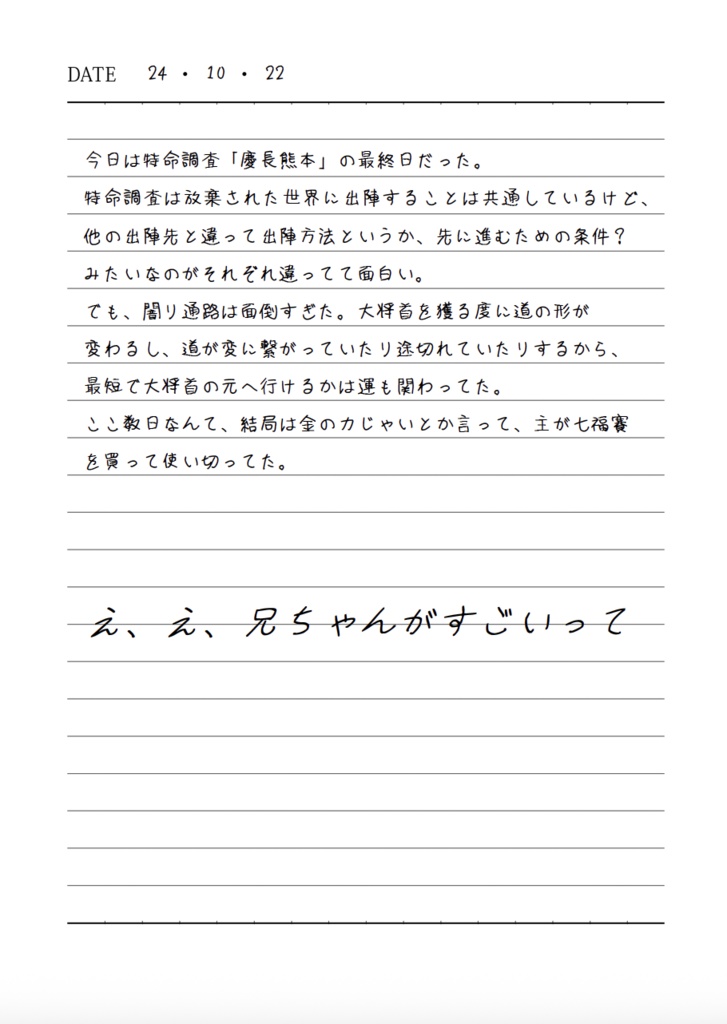 DATE 24 ・ 10 ・ 22
今日は特命調査「慶長熊本」の最終日だった。
特命調査は放棄された世界に出陣することは共通しているけど、
他の出陣先と違って出陣方法というか、先に進むための条件？
みたいなのがそれぞれ違ってて面白い。
でも、闇り通路は面倒すぎた。大将首を獲る度に道の形が
変わるし、道が変に繋がっていたり途切れていたりするから、
最短で大将首の元へ行けるかは運も関わってた。
ここ数日なんて、結局は金の力じゃいとか言って、主が七福賽
を買って使い切ってた。
え、え、兄ちゃんがすごいって